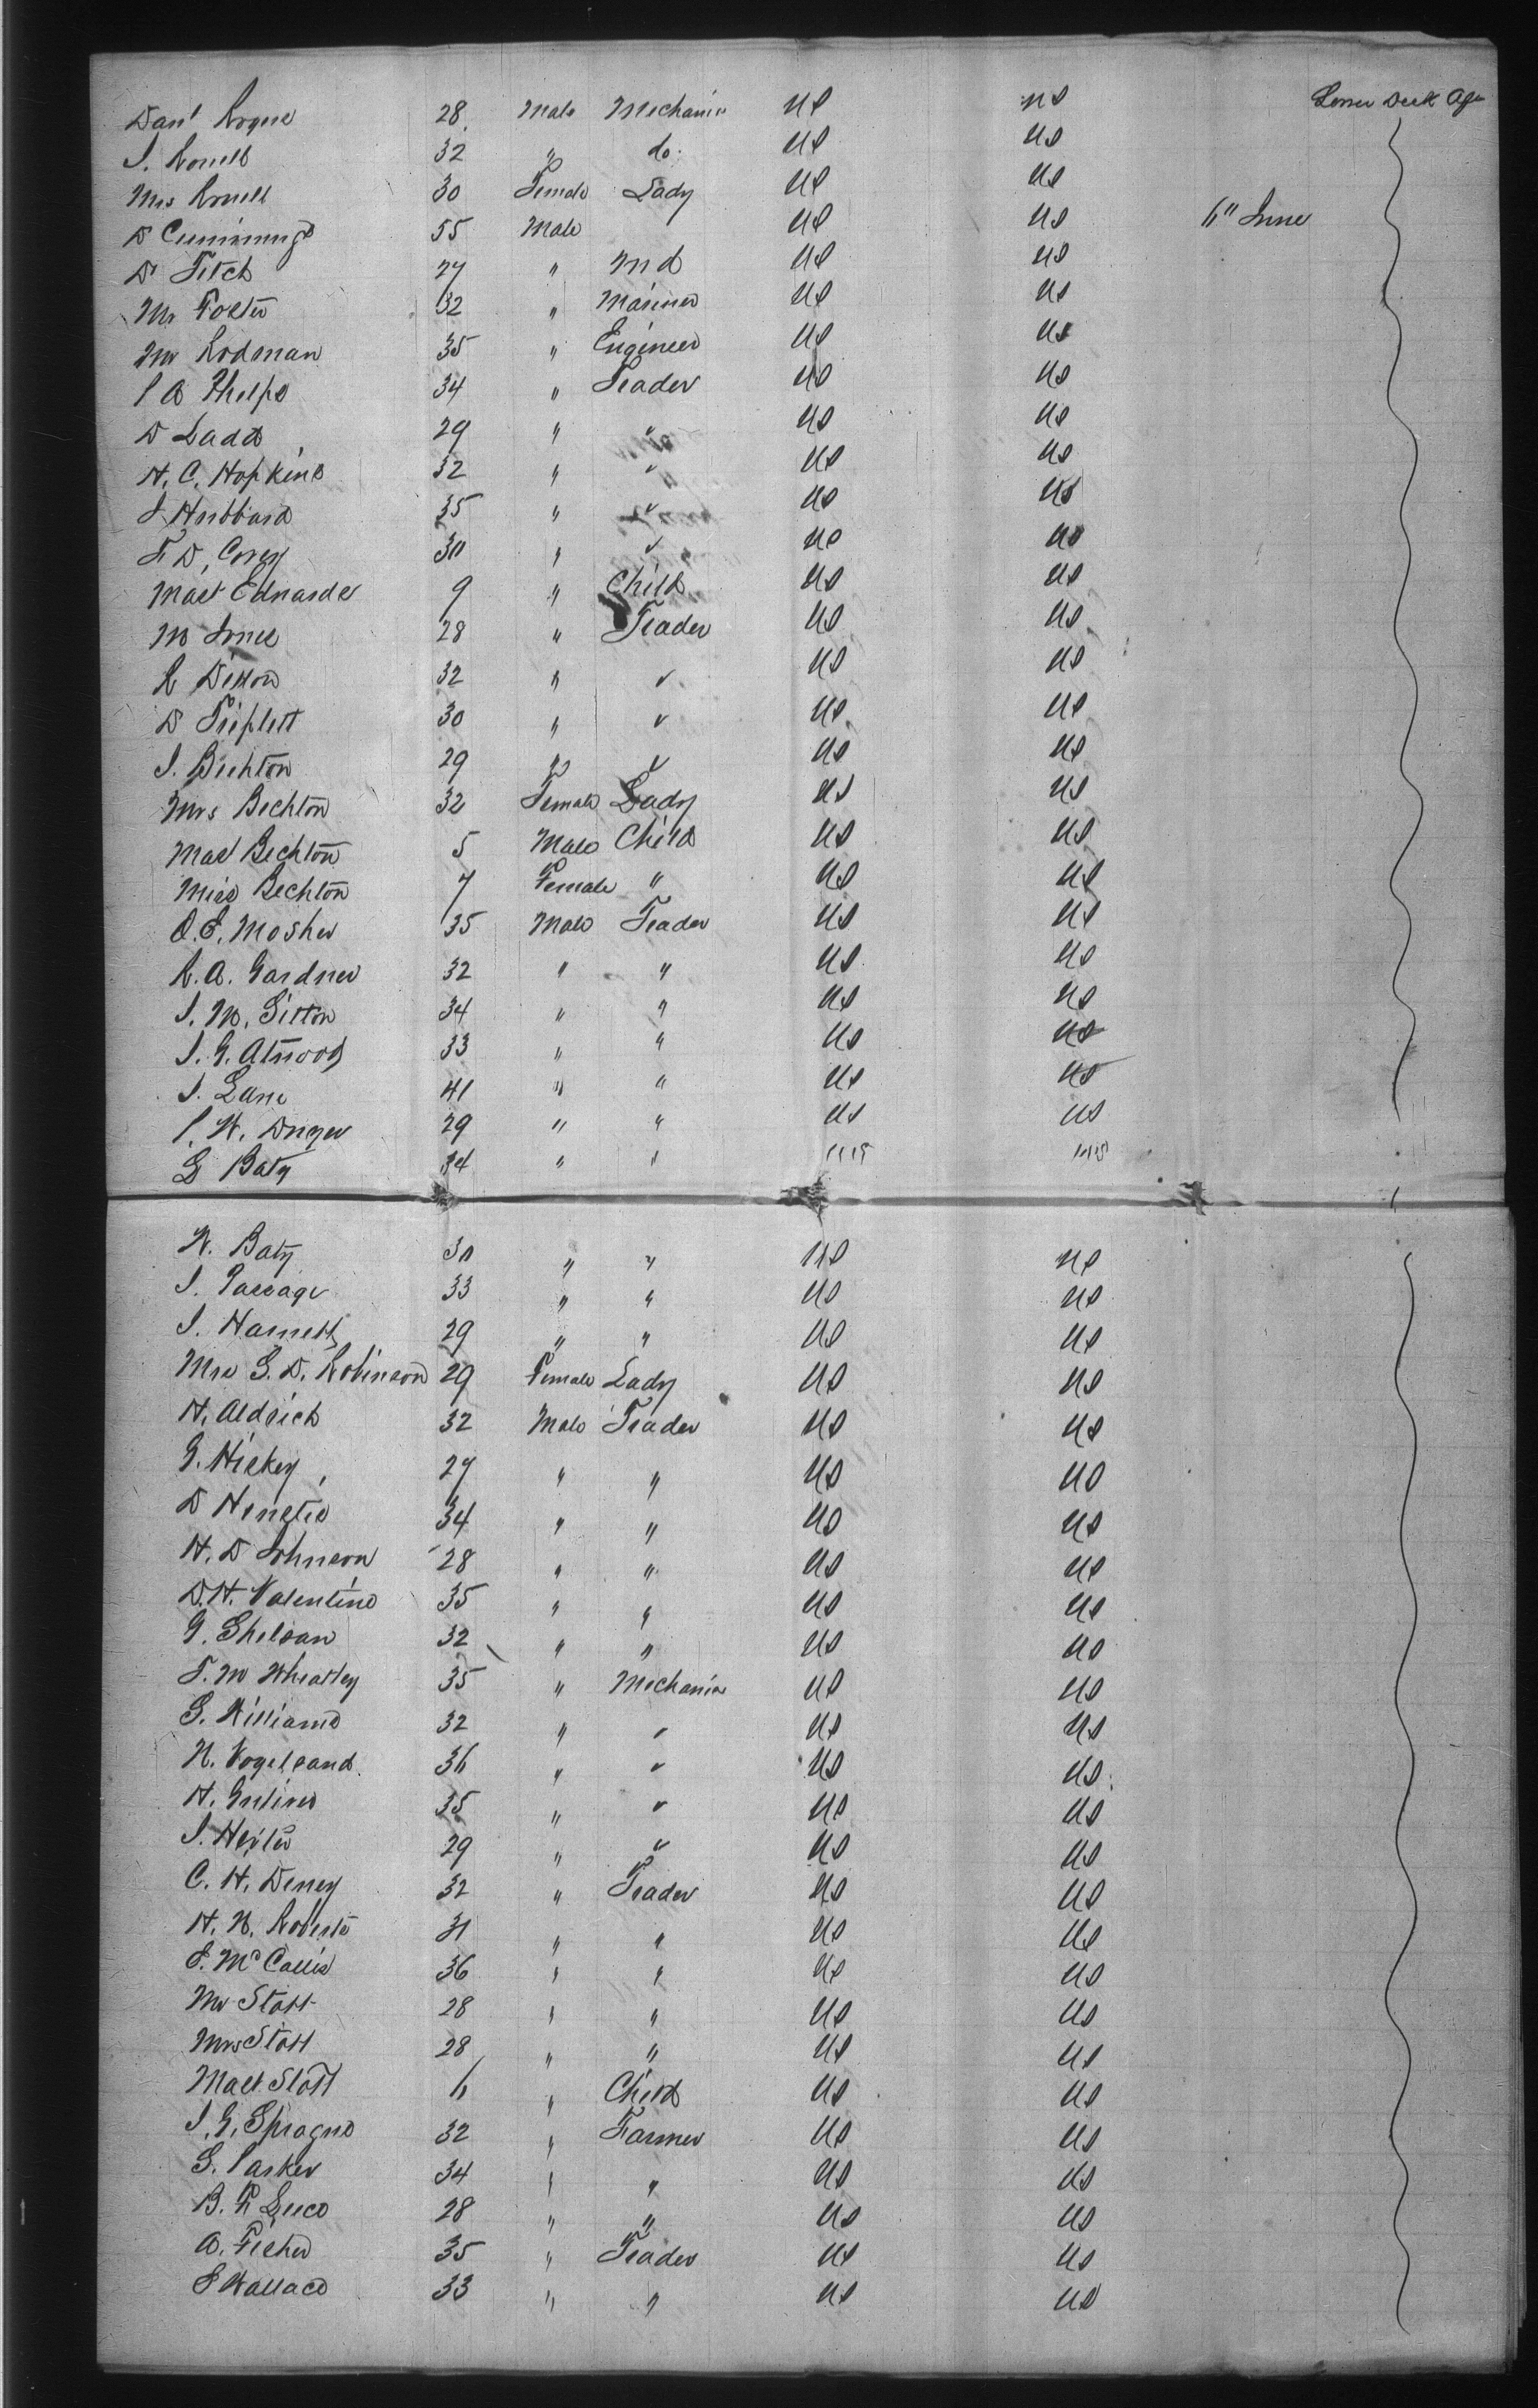 Danl Rogers 28 Male Mechanic US US Lower Deck Aft
J. Rowell 32 " do. US US
Mrs Rowell 30 Female Lady US US
D Cummings 55 Male US US 6" June
Dr Fitch 27 " M d US US
Mr Foster 32 " Mariner US US
Mr Rodman 35 " Engineer US US
P A Phelps 34 " Trader US US
D Ladd 29 " " US US
H. C. Hopkins 32 " " US US
J Hubbard 35 " " US US
F. D. Corey 30 " " US US
Mast Edwards 9 " Child US US
W Jones 28 " Trader US US
R Dixon 32 " " US US
D Triplett 30 " " US US
J. Bechton 29 " " US US
Mrs Bechton 32 Female Lady US US
Mast Bechton 5 Male Child US US
Miss Bechton 7 Female " US US
O. E. Mosher 35 Male Trader US US
R. A. Gardner 32 " " US US
J. W. Sitton 34 " " US US
J. G. Atwood 33 " " US US
J. Lane 41 " " US US
P. W. Dwyer 29 " " US US
S Baty 34 " " US US
W. Baty 30 " " US US
J. Passage 33 " " US US
J. Harnett 29 " " US US
Mrs S. D. Robinson 29 Female Lady US US
H. Aldrich 32 Male Trader US US
G. Hickey 27 " " US US
D 34 " " US US
H. D Johnson 28 " " US US
D. H. Valentine 35 " " US US
G. 32 " " US US
T. W Wheatley 35 " Mechanic US US
S. Williams 32 " " US US
N. Vogelsand 36 " " US US
H. 35 " " US US
J. 29 " " US US
C. H. Deney 32 " Trader US US
H. N. Roberts 31 " " US US
S. McCallis 36 " " US US
Mr Stott 28 " " US US
Mrs Stott 28 " " US US
Mast Stott 6 " Child US US
J. G. Sprague 32 " Farmer US US
S. Parker 34 " " US US
B. F. Luce 28 " " US US
A. Fisher 35 " Trader US US
S Wallace 33 " " US US